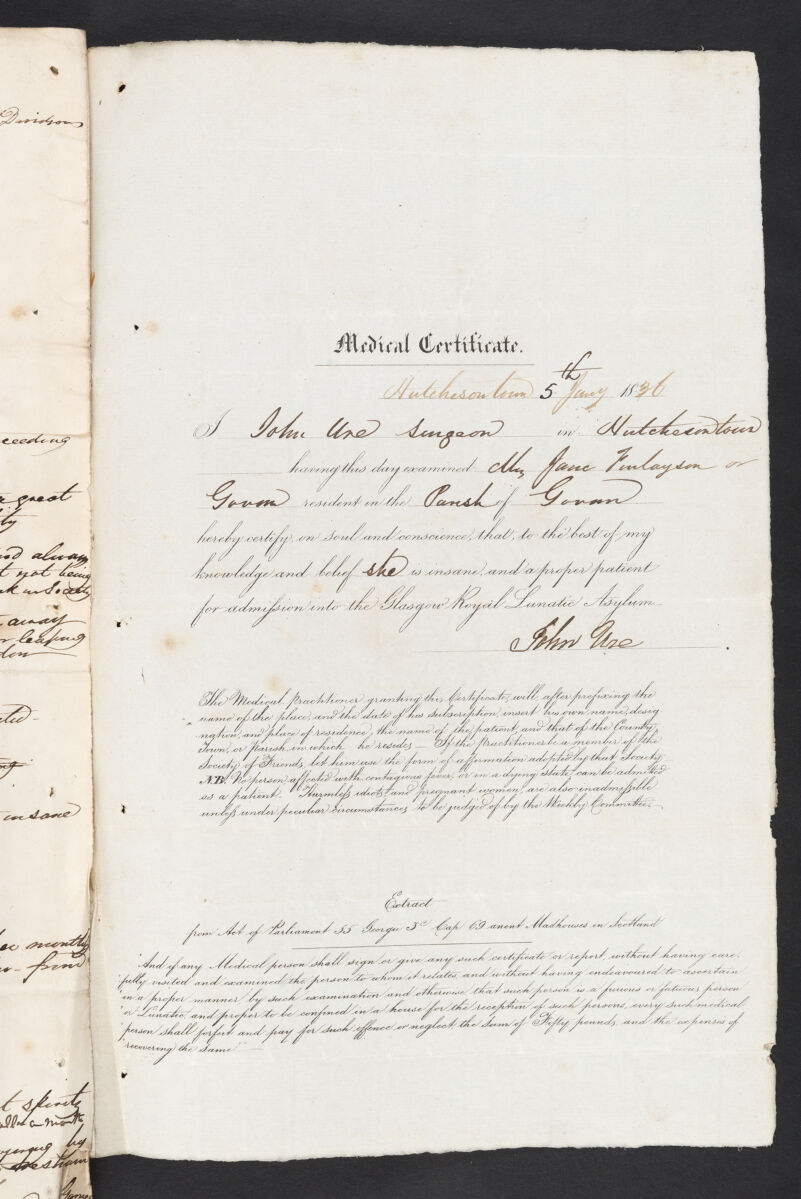 Davidson
ceeding
great
ty
and always
t not being
away
r leaping
insane
monthly
t spirits
by
Medical Certificate.
Hutchesontown 5th Jany 1836
I John Ure Surgeon in Hutchesontown
having this day examined Mrs Jane Finlayson or
Govan resident in the Parish of Govan
hereby certify, on soul and conscience, that, to the best of my
knowledge and belief she is insane, and a proper patient
for admission into the Glasgow Royal Lunatic Asylum
John Ure
The Medical Practitioner granting this Certificate, will, after prefixing the
name of the place, and the date of his subscription, insert his own name, desig
nation, and place of residence, the name of the patient, and that of the County,
Town, or parish in which he resides — If the practitioner be a member of the
Society of Friends, let him use the form of affirmation adopted by that Society
NB. No person affected with contagious fever, or in a dying state, can be admitted
as a patient. Harmless idiots and pregnant women, are also inadmissible
unless under peculiar circumstances to be judged of by the Weekly Committee.
Extract
from Act of Parliament 55 George 3d Cap 69 anent Madhouses in Scotland
"And if any Medical person shall sign or give any such certificate or report, without having care.
"fully visited and examined the person to whom it relates and without having endeavoured to ascertain
"in a proper manner by such examination and otherwise that such person is a furious or fatuous person
"or Lunatic, and proper to be confined in a house for the reception of such persons, every such medical
"person shall forfeit and pay for such offence or neglect the sum of Fifty pounds, and the expenses of
"recovering the same" —